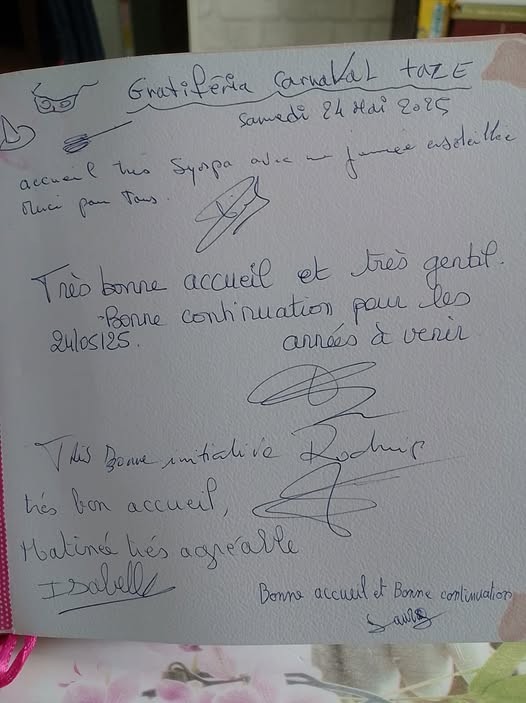 Gratiféria Carnaval taze
Samedi 24 Mai 2025
accueil très Sympa avec une journée ensoleillée
Merci pour Tous.
Très bonne accueil et très gentil.
Bonne continuation pour les
24/05/25. années à venir
Très Bonne initiative
très bon accueil,
Matinée très agréable
Isabelle
Bonne accueil et Bonne continuation